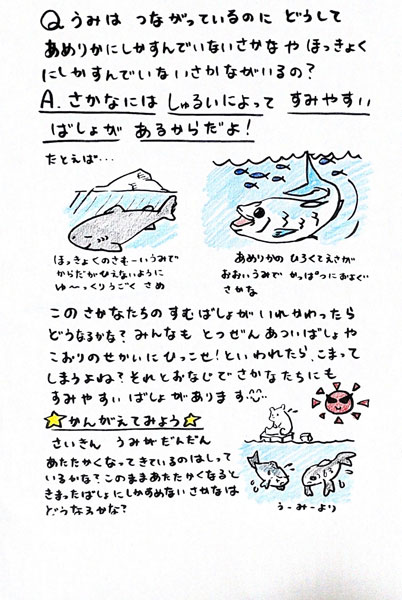 Q うみは つながっているのに どうして
あめりかにしかすんでいないさかなや ほっきょく
にしかすんでいないさかながいるの?
A. さかなには しゅるいによって すみやすい
ばしょが あるからだよ!
たとえば…
ほっきょくのさむーいうみで
からだがひえないように
ゆ〜っくりうごく さめ
あめりかの ひろくてえさが
おおいうみで かっぱつにおよぐ
さかな
このさかなたちの すむばしょが いれかわったら
どうなるかな? みんなも とつぜんあついばしょや
こおりのせかいに ひっこせ! といわれたら、こまって
しまうよね? それとおなじで さかなたちにも
すみやすい ばしょがあります
☆かんがえてみよう☆
さいきん うみがだんだん
あたたかくなってきているのはしって
いるかな? このままあたたかくなると
きまったばしょにしかすめないさかなは
どうなるかな?
うーみーより